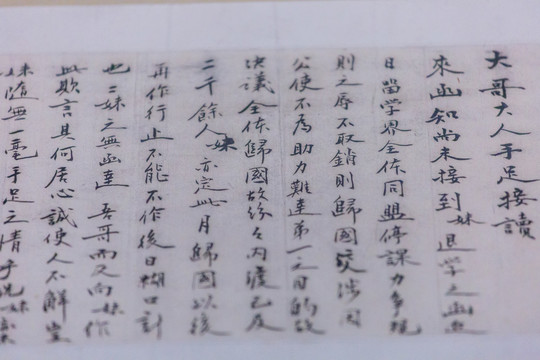 大哥大人手足接讀
來函知尚未接到妹退學之函也
日當学界全体同盟停課力爭規
則之辱不取銷則歸國交涉因
公使不為助力難達第一之目的故
決議全体歸國故紛々內渡已及
二千餘人妹亦定此月歸國以後
再作行止不能不作後日糊口計
也二妹之無函達吾哥而又向妹作
此欺言具何居心誠使人不解豈
妹隨無一毫手足之情乎況妹